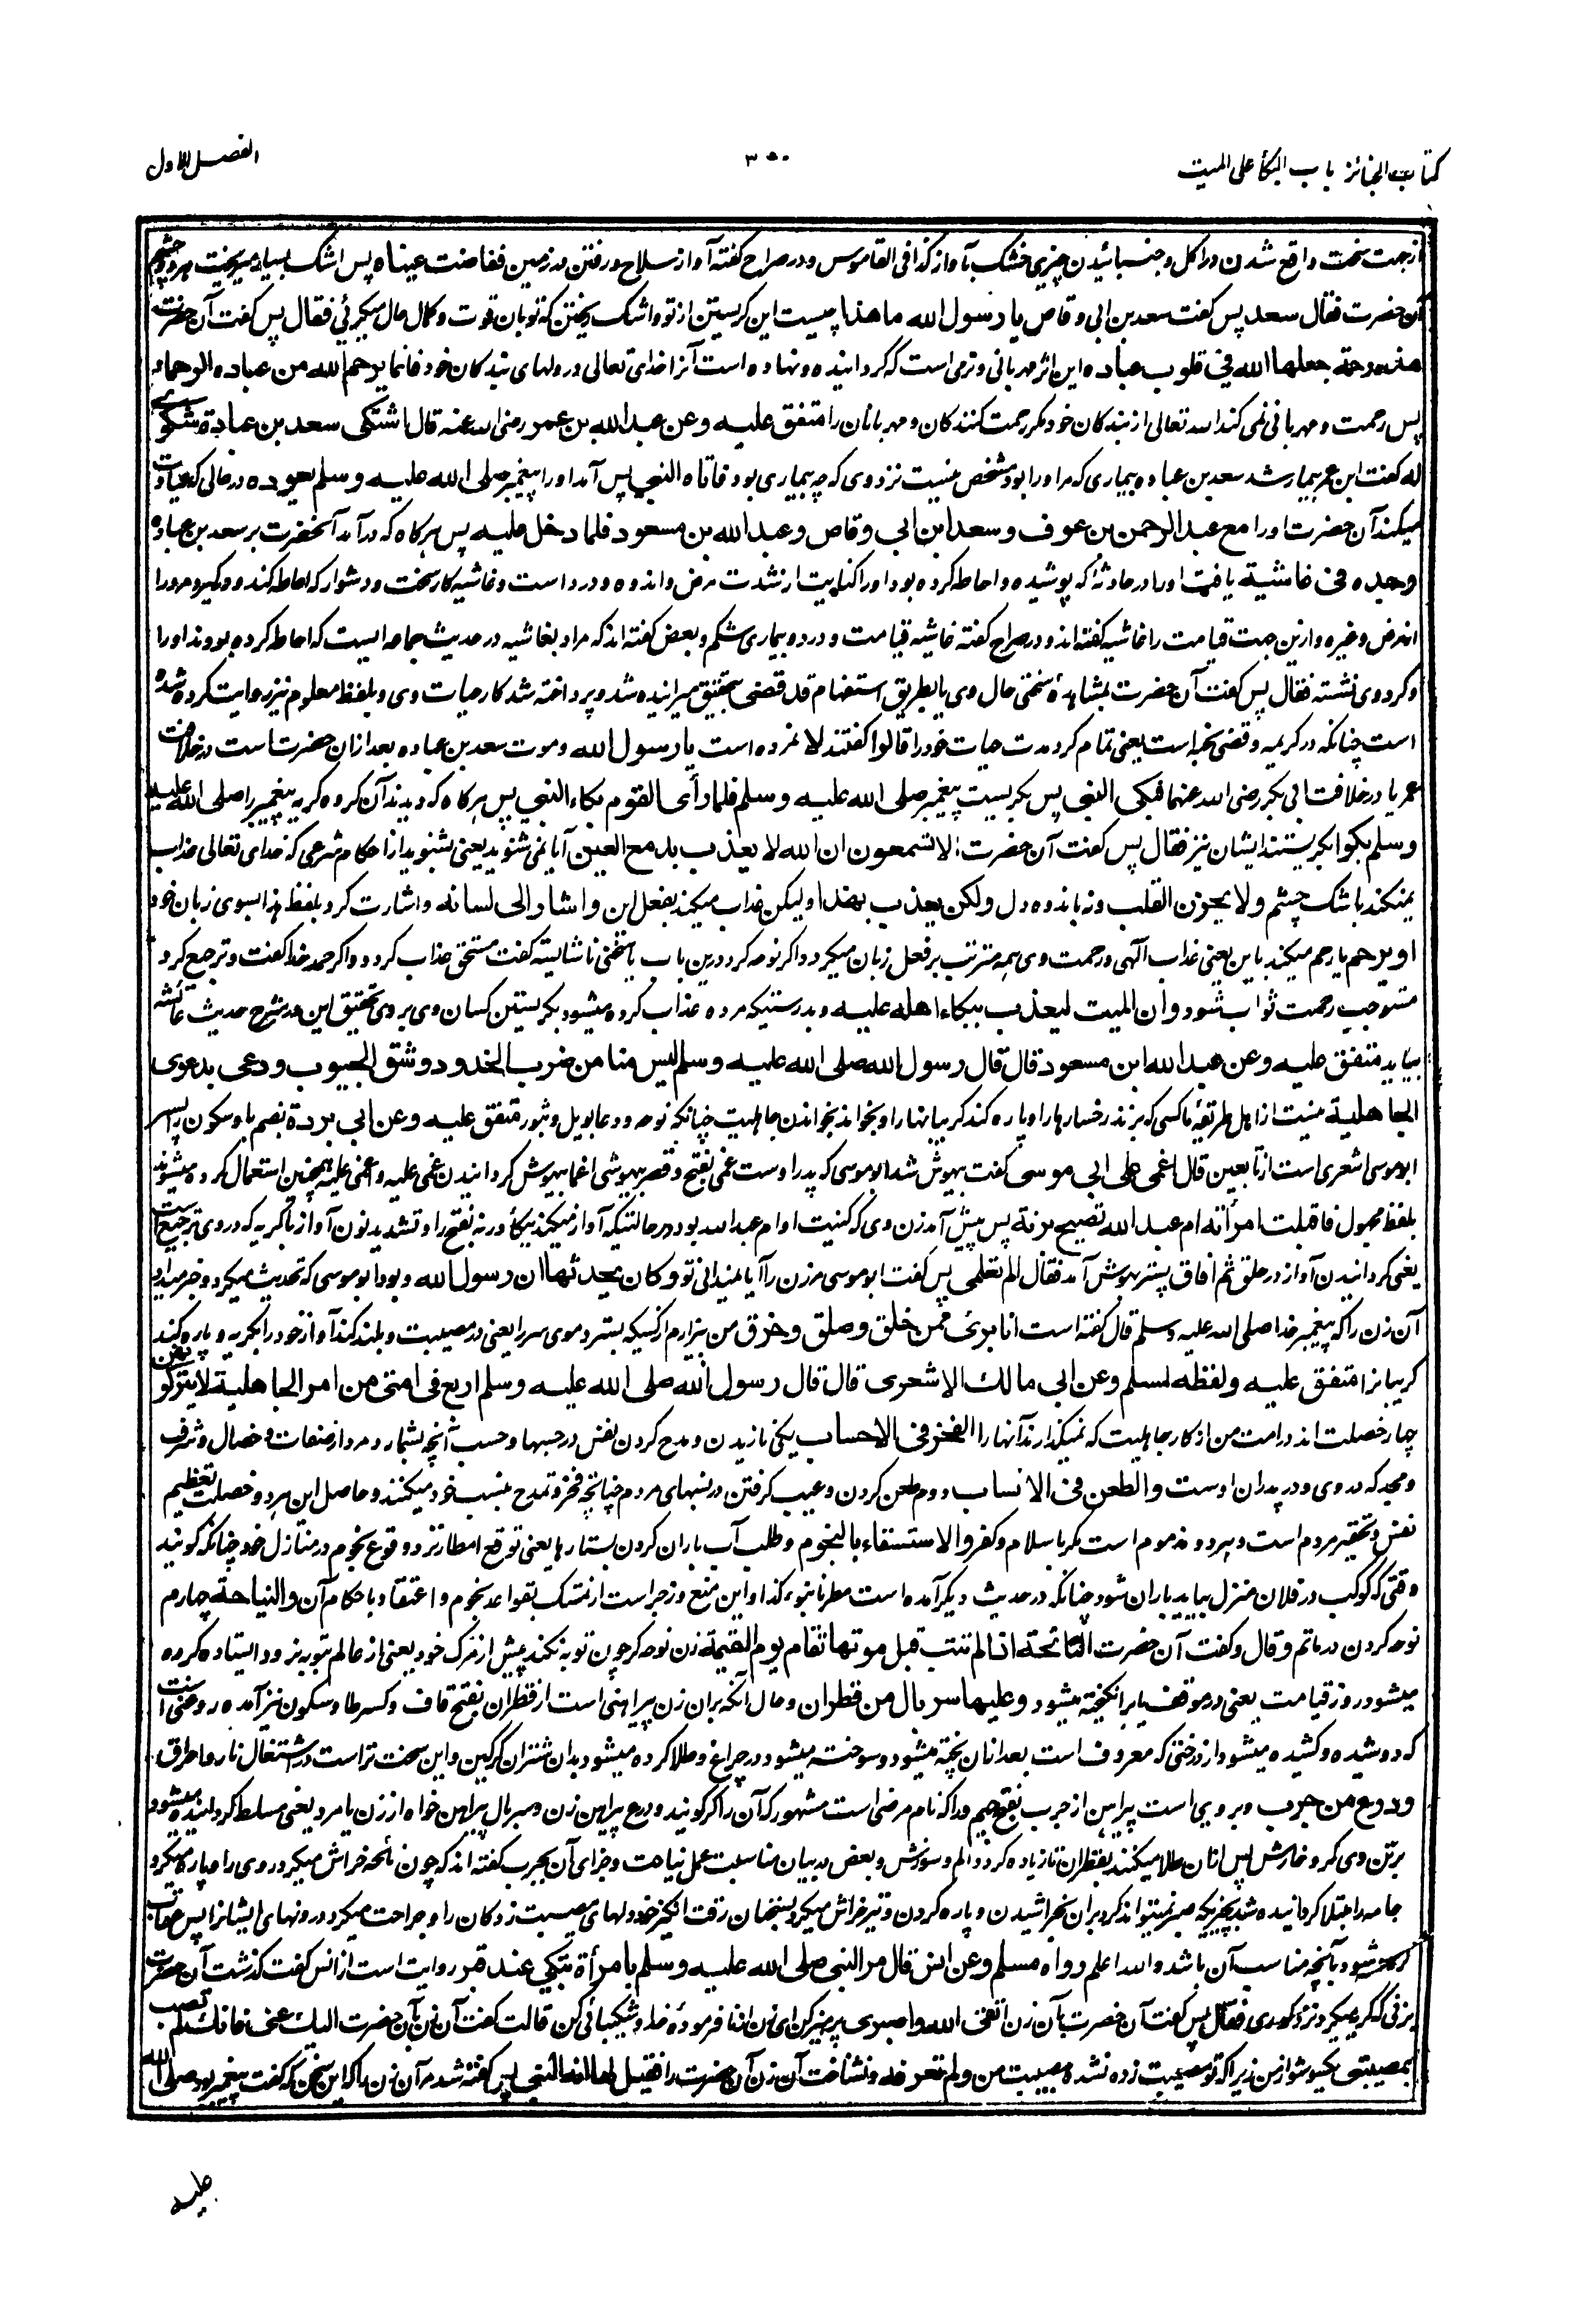 کتاب الجنائز باب البکاء علی المیت
۳۵۰
الفصل الاول
از جهت سخت واقع شدن در اکل و جنبانیدن چیزی خشک بآواز کذا فی القاموس و در صراح گفته آواز سلاح و رفتن در زمین ففاضت عیناه پس اشک بسیار میریخت هر دو چشم
آن حضرت فقال سعد پس گفت سعد بن ابی وقاص یا رسول الله ما هذا چیست این گریستن از تو و اشک ریختن که تو بان قوت و کمال حال میگریی فقال پس گفت آن حضرت
هذه رحمة جعلها الله فی قلوب عباده این اثر مهربانی و نرمی است که گردانیده و نهاده است آنرا خدای تعالی در دلهای بندگان خود فانما یرحم الله من عباده الرحماء
پس رحمت و مهربانی نمی کند الله تعالی از بندگان خود مگر رحمت کنندگان و مهربانان را متفق علیه و عن عبد الله بن عمر رضی الله عنه قال اشتکی سعد بن عبادة شکوی
له گفت ابن عمر بیمار شد سعد بن عباده بیماری که مر او را بود مشخص نیست نزد وی که چه بیماری بود فاتاه النبی پس آمد او را پیغمبر صلی الله علیه و سلم یعوده در حالی که عیادت
میکند آن حضرت او را مع عبد الرحمن بن عوف و سعد ابن ابی وقاص و عبد الله بن مسعود فلما دخل علیه پس هرگاه که در آمد آنحضرت بر سعد بن عباده
وجده فی غاشیة یافت او را در حادثه که پوشیده و احاطه کرده بود او را کنایت از شدت مرض و اندوه و درد است و غاشیه کار سخت و دشوار که احاطه کند و درگیرد مر او را
از مرض و غیره و ازین جهت قیامت را غاشیه گفته اند و در صراح گفته غاشیه قیامت و درد و بیماری شکم و بعض گفته اند که مراد بغاشیه در حدیث جماعه ایست که احاطه کرده بودند او را
و گرد وی نشسته فقال پس گفت آن حضرت بمشاهدهٔ سختی حال وی یا بطریق استفهام قد قضی بتحقیق میرانیده شد و پرداخته شد کار حیات وی و بلفظ معلوم نیز روایت کرده شده
است چنانکه در کریمه و قضی نحبه است یعنی تمام کرد مدت حیات خود را قالوا گفتند لا نمرده است یا رسول الله و موت سعد بن عباده بعد ازان حضرت است در خلافت
عمر یا در خلافت ابی بکر رضی الله عنهما فبکی النبی پس بگریست پیغمبر صلی الله علیه و سلم فلما رأی القوم بکاء النبی پس هرگاه که دیدند آن گروه گریه پیغمبر را صلی الله علیه
و سلم بکوا بگریستند ایشان نیز فقال پس گفت آن حضرت الا تسمعون ان الله لا یعذب بدمع العین آیا نمی شنوید یعنی بشنوید از احکام شرعی که خدای تعالی عذاب
نمیکند باشک چشم و لا بحزن القلب و نه باندوه دل و لکن یعذب بهذا و لیکن عذاب میکند بفعل این و اشار الی لسانه و اشارت کرد بلفظ هذا بسوی زبان خود
او یرحم یا رحم میکند باین یعنی عذاب الهی و رحمت وی همه مترتب بر فعل زبان میگردد اگر نوحه کرد درین باب یا سخنی ناشایسته گفت مستحق عذاب گردد و اگر حمد خدا گفت و ترجیع کرد
مستوجب رحمت ثواب شود و ان المیت لیعذب ببکاء اهله علیه و بدرستیکه مرده عذاب کرده میشود بگریستن کسان وی بر وی تحقیق این در شرح حدیث عائشه
بیاید متفق علیه و عن عبد الله ابن مسعود قال قال رسول الله صلی الله علیه و سلم لیس منا من ضرب الخدود و شق الجیوب و دعی بدعوی
الجاهلیة نیست از اهل طریقهٔ ما کسی که بزند رخسارها را و پاره کند گریبانها را و بخواند بخواندن جاهلیت چنانکه نوحه و دعا بویل و ثبور متفق علیه و عن ابی بردة بضم با و سکون را پسر
ابو موسی اشعری است از تابعین قال اغمی علی ابی موسی گفت بیهوش شد ابو موسی که پدر اوست غمی بفتح و قصر بیهوشی اغما بیهوش گردانیدن غمی علیه و اغمی علیه همچنین استعمال کرده میشوند
بلفظ مجهول فاقبلت امرأته ام عبد الله تصیح برنة پس پیش آمد زن وی که کنیت او ام عبد الله بود در حالتیکه آواز میکند ببکا و رنه بفتح را و تشدید نون آواز با گریه که در وی ترجیع است
یعنی گردانیدن آواز در حلق ثم افاق پستر بهوش آمد فقال الم تعلمی پس گفت ابو موسی مر زن را آیا نمیدانی تو و کان یحدثها ان رسول الله و بود ابو موسی که تحدیث میکرد و خبر میداد
آن زن را که پیغمبر خدا صلی الله علیه و سلم قال گفته است انا بریٔ ممن حلق و صلق و خرق من بیزارم از کسیکه بسترد موی سر را یعنی در مصیبت و بلند کند آواز خود را بگریه و پاره کند
گریبانرا متفق علیه و لفظه لمسلم و عن ابی مالک الاشعری قال قال رسول الله صلی الله علیه و سلم اربع فی امتی من امر الجاهلیة لا یترکونهن
چهار خصلت اند در امت من از کار جاهلیت که نمیگذارند آنها را الفخر فی الاحساب یکی نازیدن و مدح کردن نفس در حسبها و حسب آنچه بشمارد مرد از صفات و خصال و شرف
و مجد که در وی و در پدران اوست و الطعن فی الانساب دوم طعن کردن و عیب گرفتن در نسبهای مردم چنانچه فخر و تمدح بنسب خود میکنند و حاصل این هر دو خصلت تعظیم
نفس و تحقیر مردم است و هر دو مذموم است مگر باسلام و کفر و الاستسقاء بالنجوم و طلب آب باران کردن بستارها یعنی توقع امطار نزد وقوع نجوم در منازل خود چنانکه گویند
وقتی که کوکب در فلان منزل بیاید باران شود چنانکه در حدیث دیگر آمده است مطرنا بنوء کذا و این منع و زجر است از تمسک بقواعد نجوم و اعتقاد باحکام آن و النیاحة چهارم
نوحه کردن در ماتم و قال و گفت آن حضرت النائحة اذا لم تتب قبل موتها تقام یوم القیمة زن نوحه گر چون توبه نکند پیش از مرگ خود یعنی از عالم بتوبه نرود ایستاده کرده
میشود روز قیامت یعنی در موقف یا برانگیخته میشود و علیها سربال من قطران و حال آنکه بران زن پیراهنی است از قطران بفتح قاف و کسر طا و سکون نیز آمده روغنی است
که دوشیده و کشیده میشود از درختی که معروف است بعد ازان پخته میشود و سوخته میشود در چراغ و طلا کرده میشود بدان شتران گرگین و این سخت تر است در اشتغال نار و احراق
و درع من جرب و بر وی است پیراهن از جرب بفتح جیم و را که نام مرضی است مشهور که آن را گر گویند و درع پیراهن زن و سربال پیراهن خواه از زن یا مرد یعنی مسلط گردانیده میشود
بر تن وی گر و خارش پس ازان طلا میکنند بقطران تا زیاده گردد الم و سوزش و بعض در بیان مناسبت عمل نیاحت و جزای آن بجرب گفته اند که چون نائحه خراش میکرد روی را و پاره میکرد
جامه را مبتلا گردانیده شد بچیزیکه صبر نمیتواند کرد بران بخراشیدن و پاره کردن و نیز خراش میکرد بسخنان رقت انگیز خود دلهای مصیبت زدگان را و جراحت میکرد درونهای ایشانرا پس عقاب
کرده شود بآنچه مناسب آن باشد و الله اعلم رواه مسلم و عن انس قال مر النبی صلی الله علیه و سلم بامرأة تبکی عند قبر روایت است از انس گفت گذشت آن حضرت
بزنی که گریه میکرد نزد گوری فقال پس گفت آن حضرت بآن زن اتقی الله و اصبری پرهیز کن ای زن از نا فرمودهٔ خدا و شکیبائی کن قالت گفت آن زن بآن حضرت الیک عنی فانک لم تصب
بمصیبتی یکسو شو از من زیرا که تو مصیبت زده نشده مصیبت من و لم تعرفه و نشناخت آن زن آن حضرت را فقیل لها انه النبی پس گفته شد مر آن زن را که این سخن که گفت پیغمبر بود صلی الله
علیه